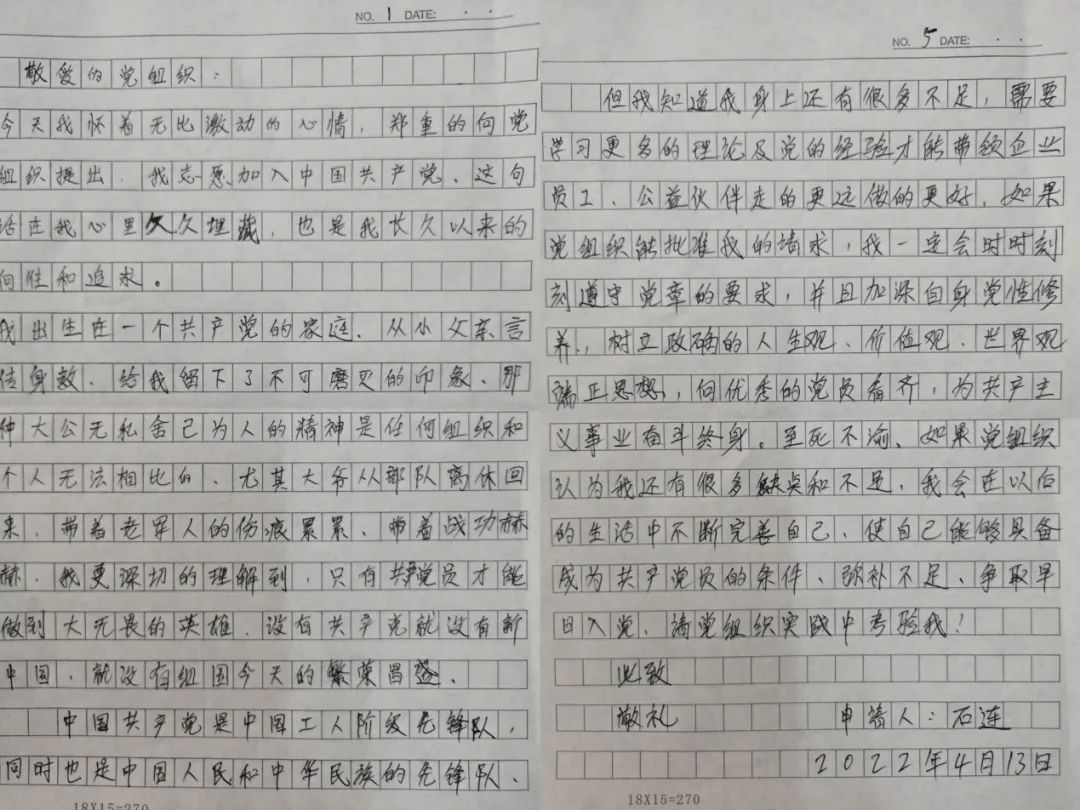 NO. 1 DATE: · ·
敬爱的党组织：
今天我怀着无比激动的心情，郑重的向党
组织提出、我志愿加入中国共产党、这句
话在我心里久久埋藏，也是我长久以来的
向往和追求。
我出生在一个共产党的家庭、从小父亲言
传身教、给我留下了不可磨灭的印象、那
种大公无私舍己为人的精神是任何组织和
个人无法相比的、尤其大爷从部队离休回
来、带着老军人的伤痕累累、带着战功赫
赫、我更深切的理解到，只有共产党员才能
做到大无畏的英雄、没有共产党就没有新
中国、就没有祖国今天的繁荣昌盛、
中国共产党是中国工人阶级先锋队，
同时也是中国人民和中华民族的先锋队、
18X15=270
NO. 5 DATE: · ·
但我知道我身上还有很多不足，需要
学习更多的理论及党的经验才能带领企业
员工、公益伙伴走的更远做的更好，如果
党组织能批准我的请求，我一定会时时刻
刻遵守党章的要求，并且加深自身党性修
养，树立正确的人生观、价值观、世界观
端正思想，向优秀的党员看齐，为共产主
义事业奋斗终身。至死不渝、如果党组织
认为我还有很多缺点和不足，我会在以后
的生活中不断完善自己、使自己能够具备
成为共产党员的条件、弥补不足、争取早
日入党、请党组织实践中考验我！
此致
敬礼 申请人：石连
2022年4月13日
18X15=270